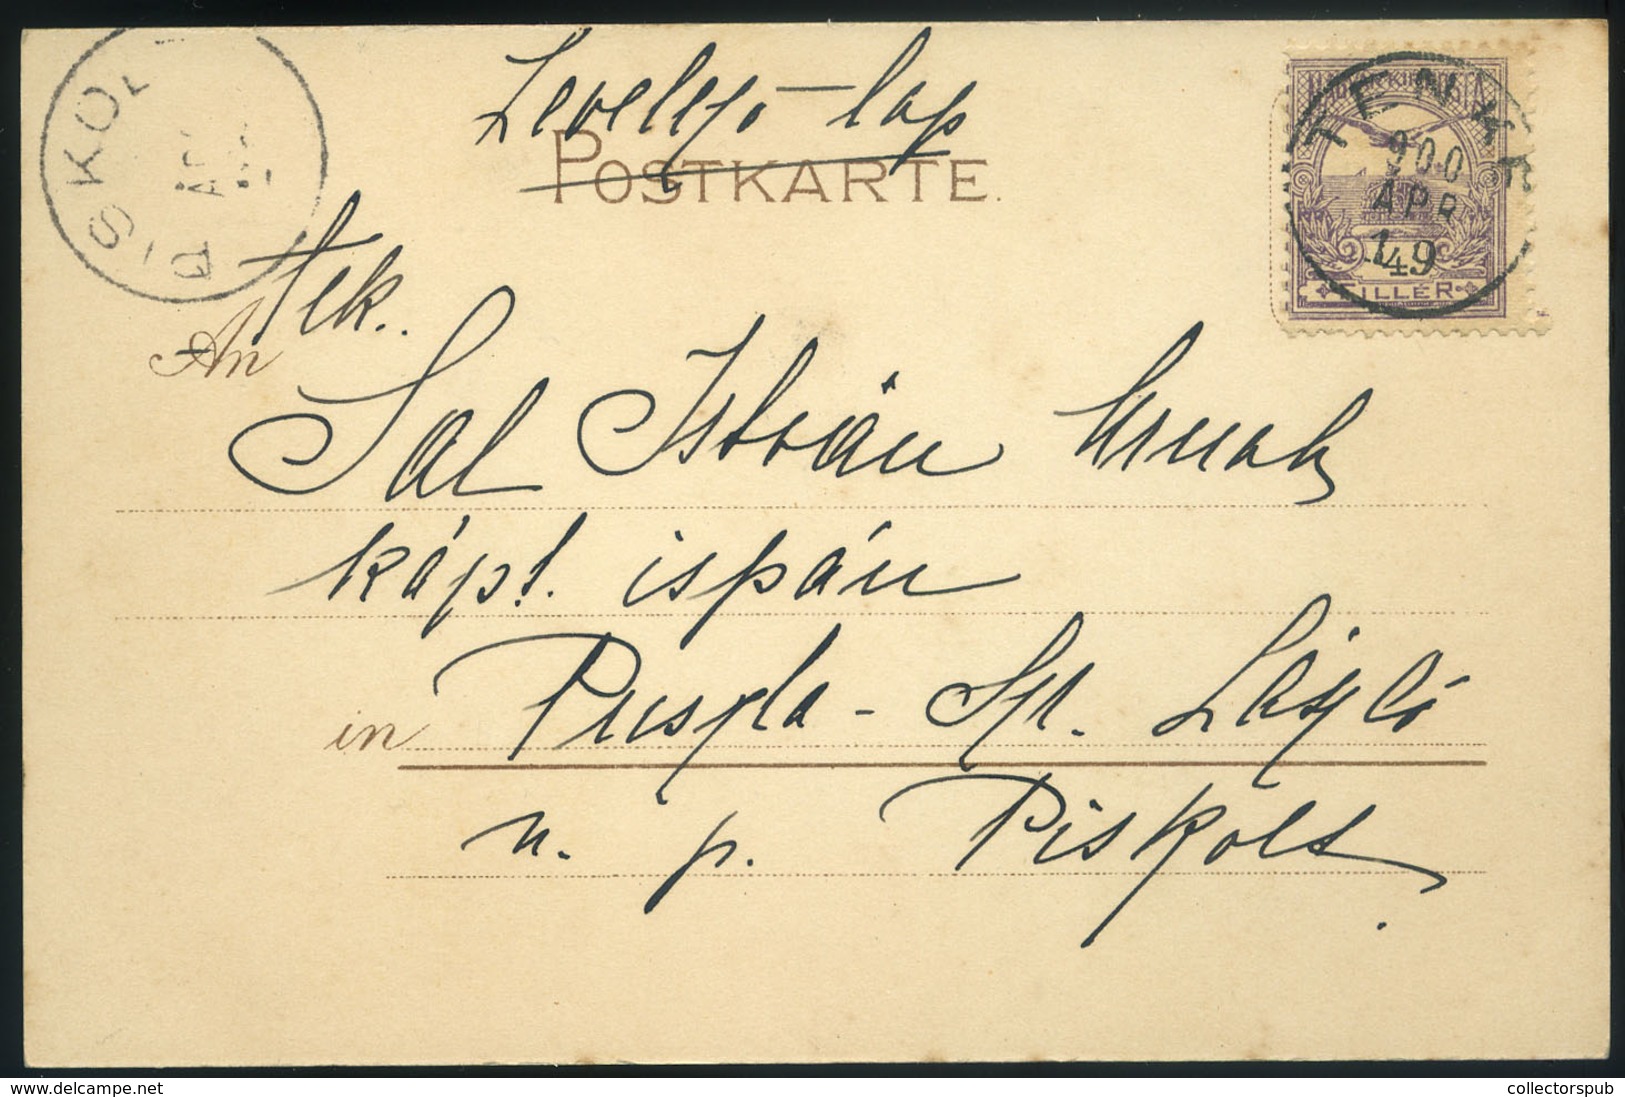 Levelező-lap
POSTKARTE.
PISKOL
MAGYAR KIR. POSTA
TENKE
900
APR
FILLÉR
Tek.
An
Sal István Urnak
kápt. ispán
in Puszta-Szt. László
u. p. Piskolt
collectorspub